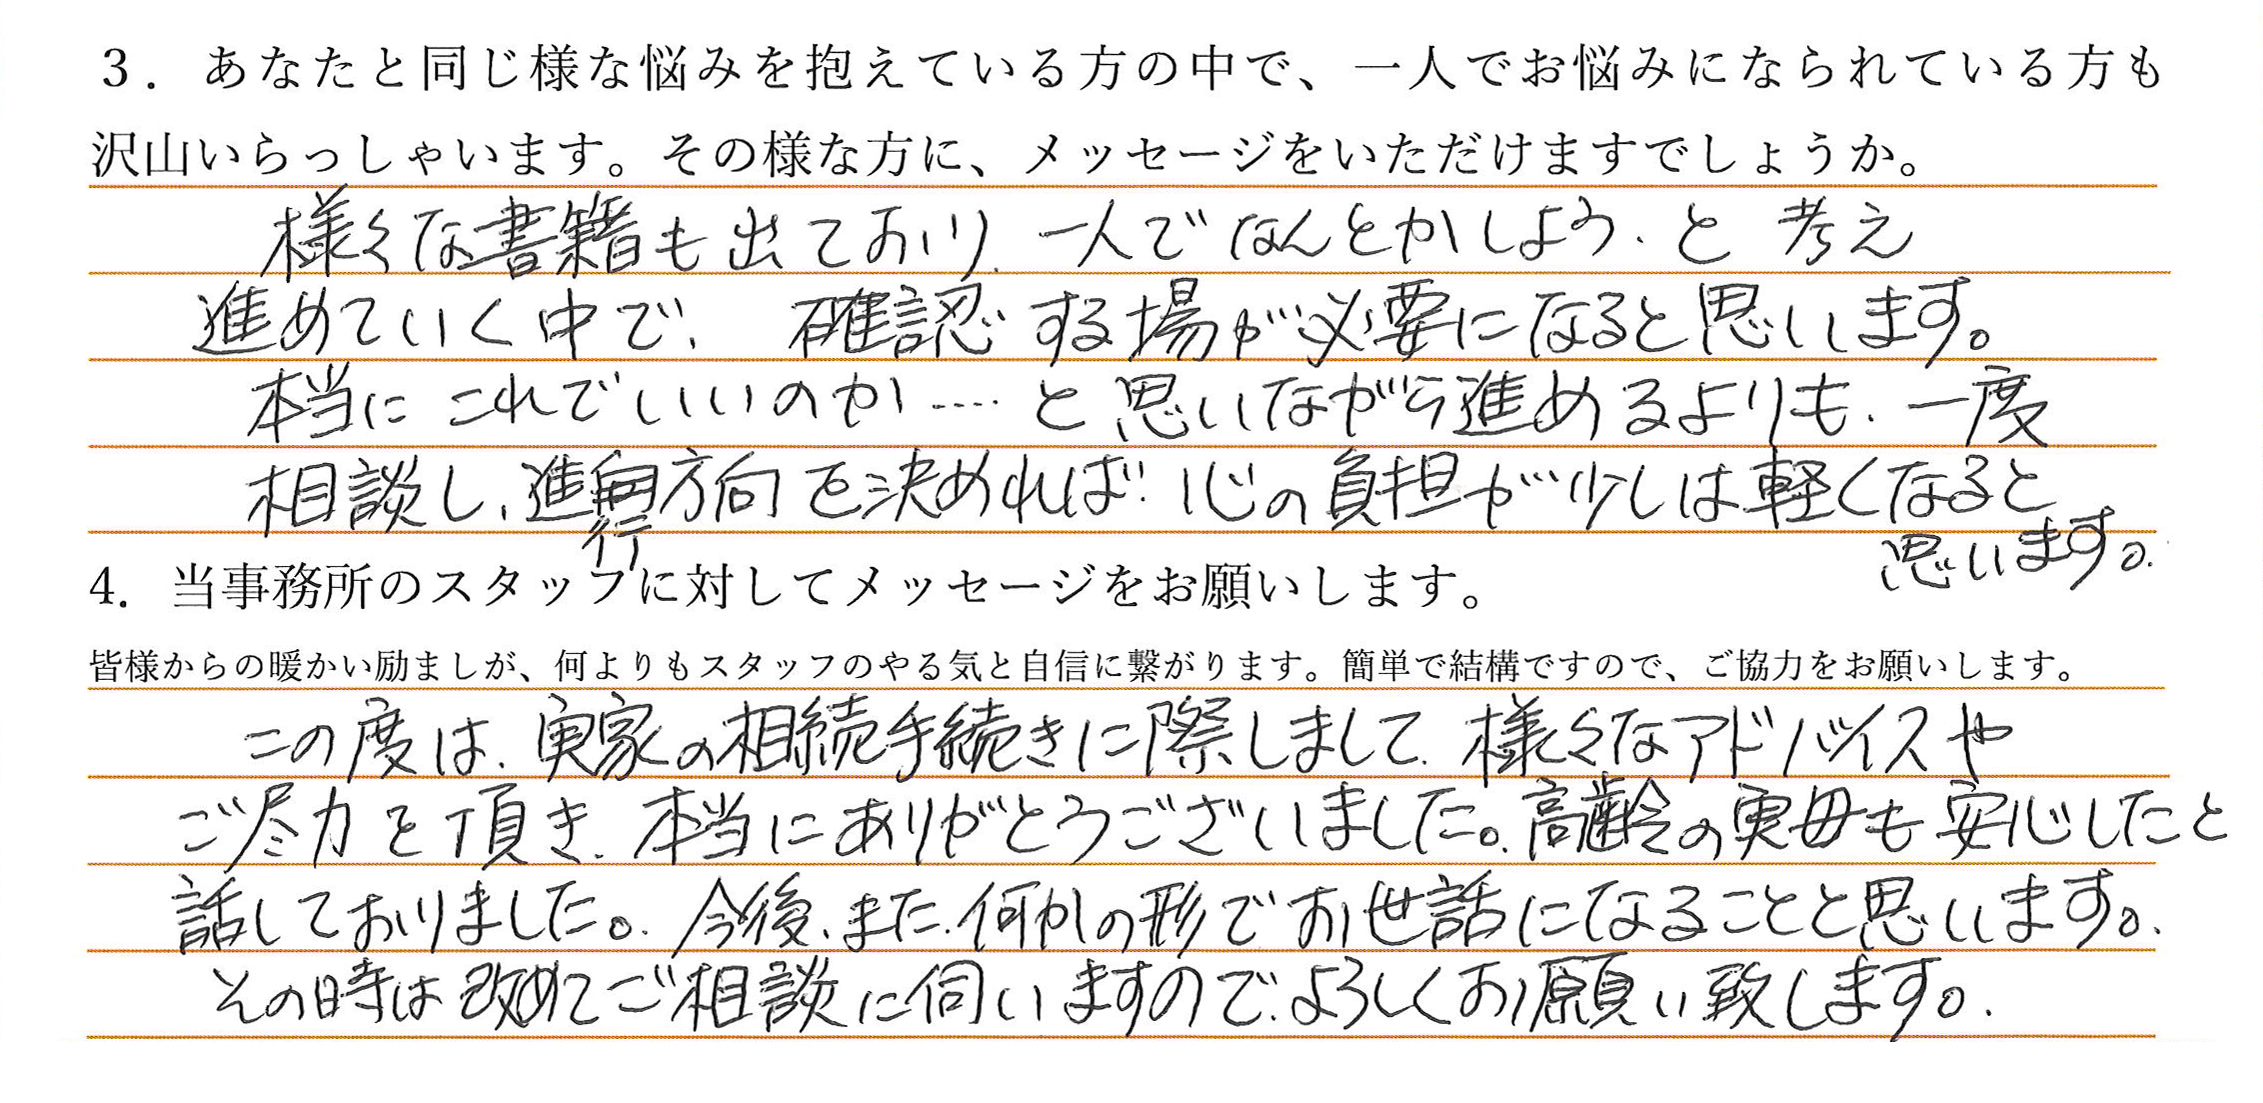 ３．あなたと同じ様な悩みを抱えている方の中で、一人でお悩みになられている方も
沢山いらっしゃいます。その様な方に、メッセージをいただけますでしょうか。
様々な書籍も出ており、一人でなんとかしよう、と考え
進めていく中で、確認する場が必要になると思います。
本当にこれでいいのか……と思いながら進めるよりも、一度
相談し、進行方向を決めれば、心の負担が少しは軽くなると
思います。
4．当事務所のスタッフに対してメッセージをお願いします。
皆様からの暖かい励ましが、何よりもスタッフのやる気と自信に繋がります。簡単で結構ですので、ご協力をお願いします。
この度は、実家の相続手続きに際しまして、様々なアドバイスや
ご尽力を頂き、本当にありがとうございました。高齢の実母も安心したと
話しておりました。今後、また、何かの形でお世話になることと思います。
その時は改めてご相談に伺いますので、よろしくお願い致します。